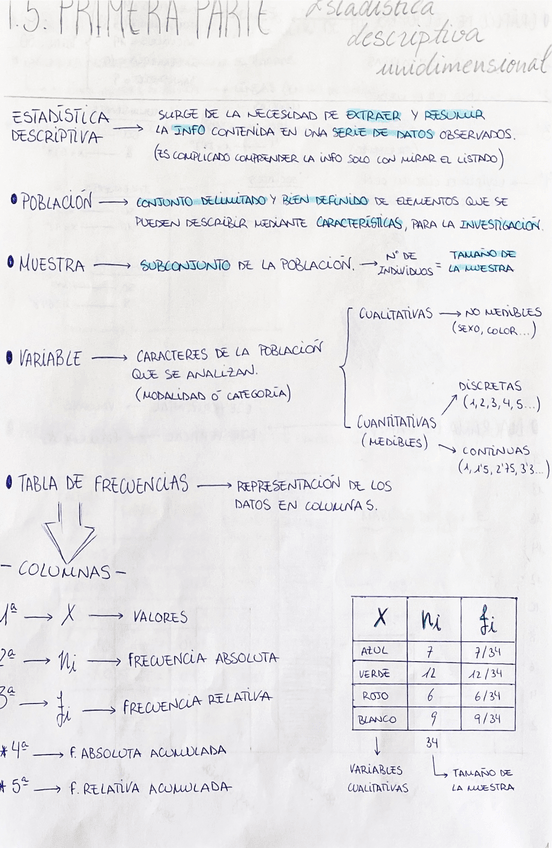 1.5. PRIMERA PARTE
Estadística
descriptiva
unidimensional
ESTADÍSTICA DESCRIPTIVA → SURGE DE LA NECESIDAD DE EXTRAER Y RESUMIR
LA INFO CONTENIDA EN UNA SERIE DE DATOS OBSERVADOS.
(ES COMPLICADO COMPRENDER LA INFO SOLO CON MIRAR EL LISTADO)
• POBLACIÓN → CONJUNTO DELIMITADO Y BIEN DEFINIDO DE ELEMENTOS QUE SE
PUEDEN DESCRIBIR MEDIANTE CARACTERÍSTICAS, PARA LA INVESTIGACIÓN.
• MUESTRA → SUBCONJUNTO DE LA POBLACIÓN. → Nº DE INDIVIDUOS = TAMAÑO DE LA MUESTRA
• VARIABLE → CARACTERES DE LA POBLACIÓN
QUE SE ANALIZAN.
(MODALIDAD Ó CATEGORÍA)
CUALITATIVAS → NO MEDIBLES
(SEXO, COLOR...)
CUANTITATIVAS
(MEDIBLES)
DISCRETAS
(1, 2, 3, 4, 5...)
CONTINUAS
(1, 1'5, 2'75, 3'3...)
• TABLA DE FRECUENCIAS → REPRESENTACIÓN DE LOS
DATOS EN COLUMNAS.
- COLUMNAS -
1ª → X → VALORES
2ª → ni → FRECUENCIA ABSOLUTA
3ª → fi → FRECUENCIA RELATIVA
* 4ª → F. ABSOLUTA ACUMULADA
* 5ª → F. RELATIVA ACUMULADA
X ni fi
AZUL 7 7/34
VERDE 12 12/34
ROJO 6 6/34
BLANCO 9 9/34
34
VARIABLES
CUALITATIVAS
TAMAÑO DE
LA MUESTRA